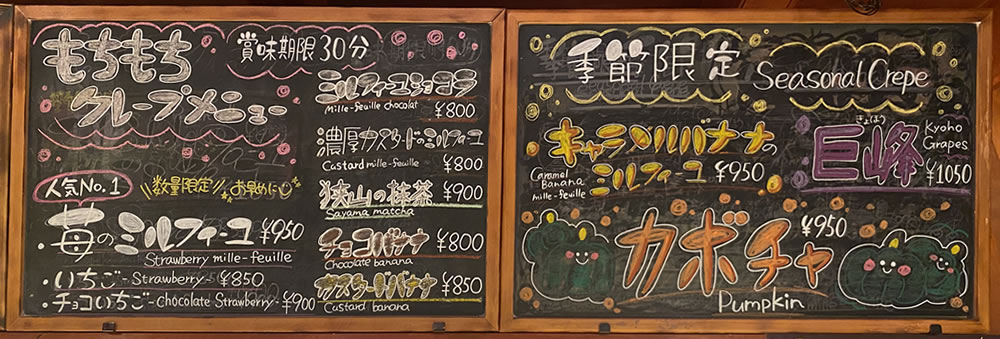 もちもち
クレープメニュー
賞味期限30分
人気No.1
数量限定 お早めに
・苺のミルフィーユ ¥950
Strawberry mille-feuille
・いちご-Strawberry-¥850
・チョコいちご-chocolate Strawberry-¥900
ミルフィーユショコラ
Mille-feuille chocolat ¥800
濃厚カスタードのミルフィーユ
Custard mille-feuille ¥800
狭山の抹茶 ¥900
Sayama matcha
チョコバナナ ¥800
Chocolate banana
カスタードバナナ ¥850
Custard banana
季節限定 Seasonal Crepe
キャラメルバナナの
Caramel
Banana
mille-feuille
ミルフィーユ ¥950
きょほう
巨峰
Kyoho
Grapes
¥1050
カボチャ ¥950
Pumpkin